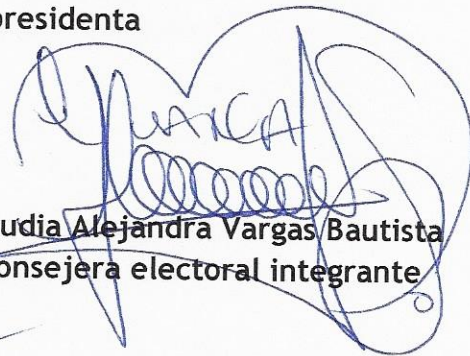 presidenta
udia Alejandra Vargas Bautista
onsejera electoral integrante